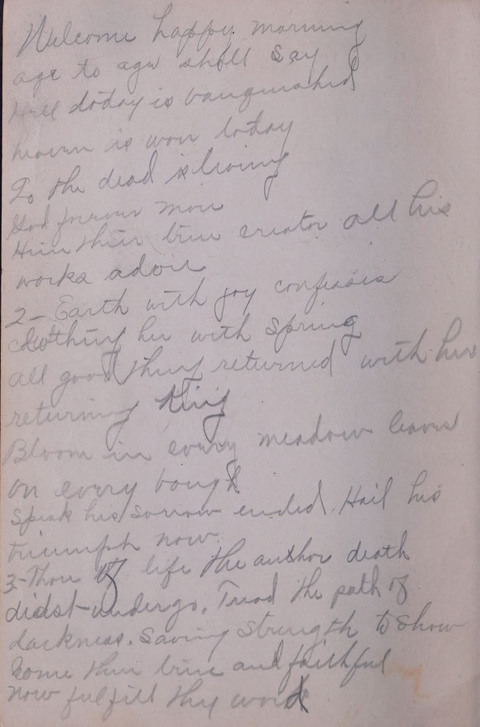 Welcome happy morning
age to age shall say
Hell today is vanquished
heaven is won today
Lo the dead is living
God forever more
Him their true creator all his
works adore
2- Earth with joy confesses
clothing her with spring
all good thing returned with her
returning King
Bloom in every meadow leaves
on every bough
speak his sorrow ended. Hail his
triumph now
3- Thou of life the author death
didst undergo. Tread the path of
darkness. Saving strength to show
Come then true and faithful
now fulfill thy word